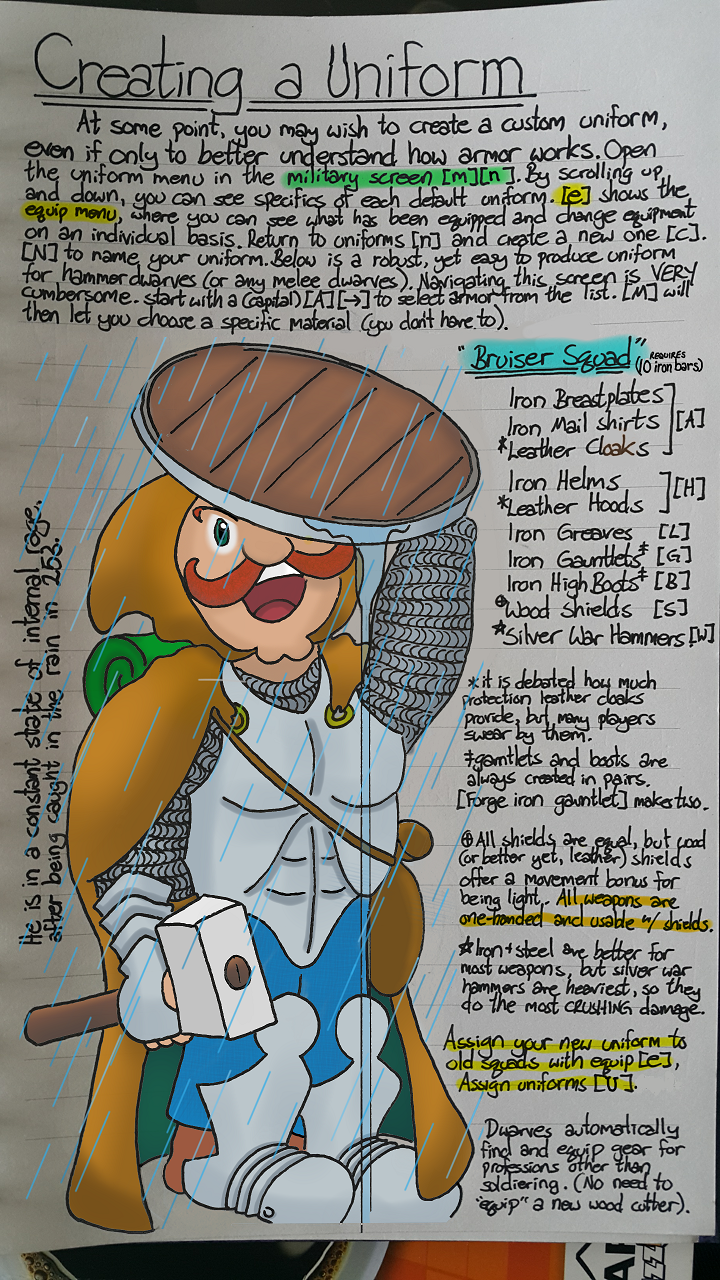 Creating a Uniform
At some point, you may wish to create a custom uniform,
even if only to better understand how armor works. Open
the uniform menu in the military screen [m][n]. By scrolling up
and down, you can see specifics of each default uniform. [e] shows the
equip menu, where you can see what has been equipped and change equipment
on an individual basis. Return to uniforms [n] and create a new one [c].
[N] to name your uniform. Below is a robust, yet easy to produce uniform
for hammerdwarves (or any melee dwarves). Navigating this screen is VERY
cumbersome. start with a (capital) [A] [→] to select armor from the list. [M] will
then let you choose a specific material (you don't have to).
"Bruiser Squad" (REQUIRES
10 iron bars)
Iron Breastplates
Iron Mail shirts [A]
*Leather Cloaks
Iron Helms [H]
*Leather Hoods
Iron Greaves [L]
Iron Gauntlets‡ [G]
Iron High Boots‡ [B]
⊕Wood Shields [S]
☆Silver War Hammers [W]
*it is debated how much
protection leather cloaks
provide, but many players
swear by them.
‡gauntlets and boots are
always created in pairs.
[Forge iron gauntlet] makes two.
⊕All shields are equal, but wood
(or better yet, leather) shields
offer a movement bonus for
being light. All weapons are
one-handed and usable w/ shields.
☆Iron + steel are better for
most weapons, but silver war
hammers are heaviest, so they
do the most CRUSHING damage.
Assign your new uniform to
old squads with equip [e],
Assign uniforms [U].
Dwarves automatically
find and equip gear for
professions other than
soldiering. (No need to
"equip" a new wood cutter).
He is in a constant state of internal rage.
after being caught in the rain in 253.